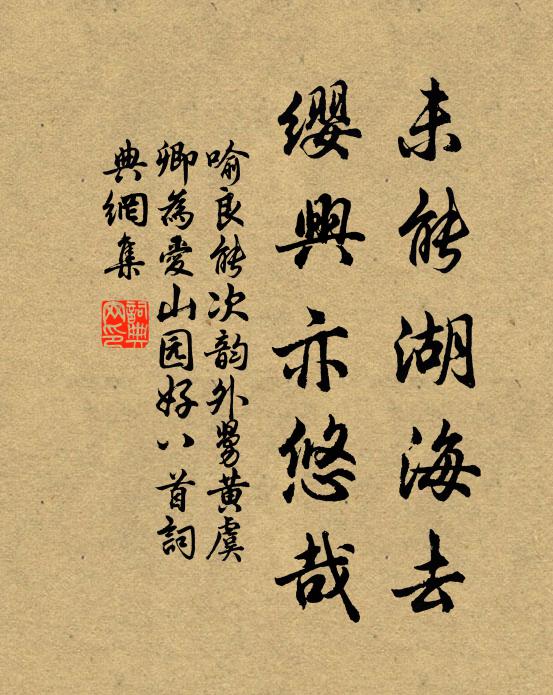 未能湖海去
缨興亦悠哉
喻良能次韵外舅黄虞
卿為愛山园好八首詞
典網集
詞典網印